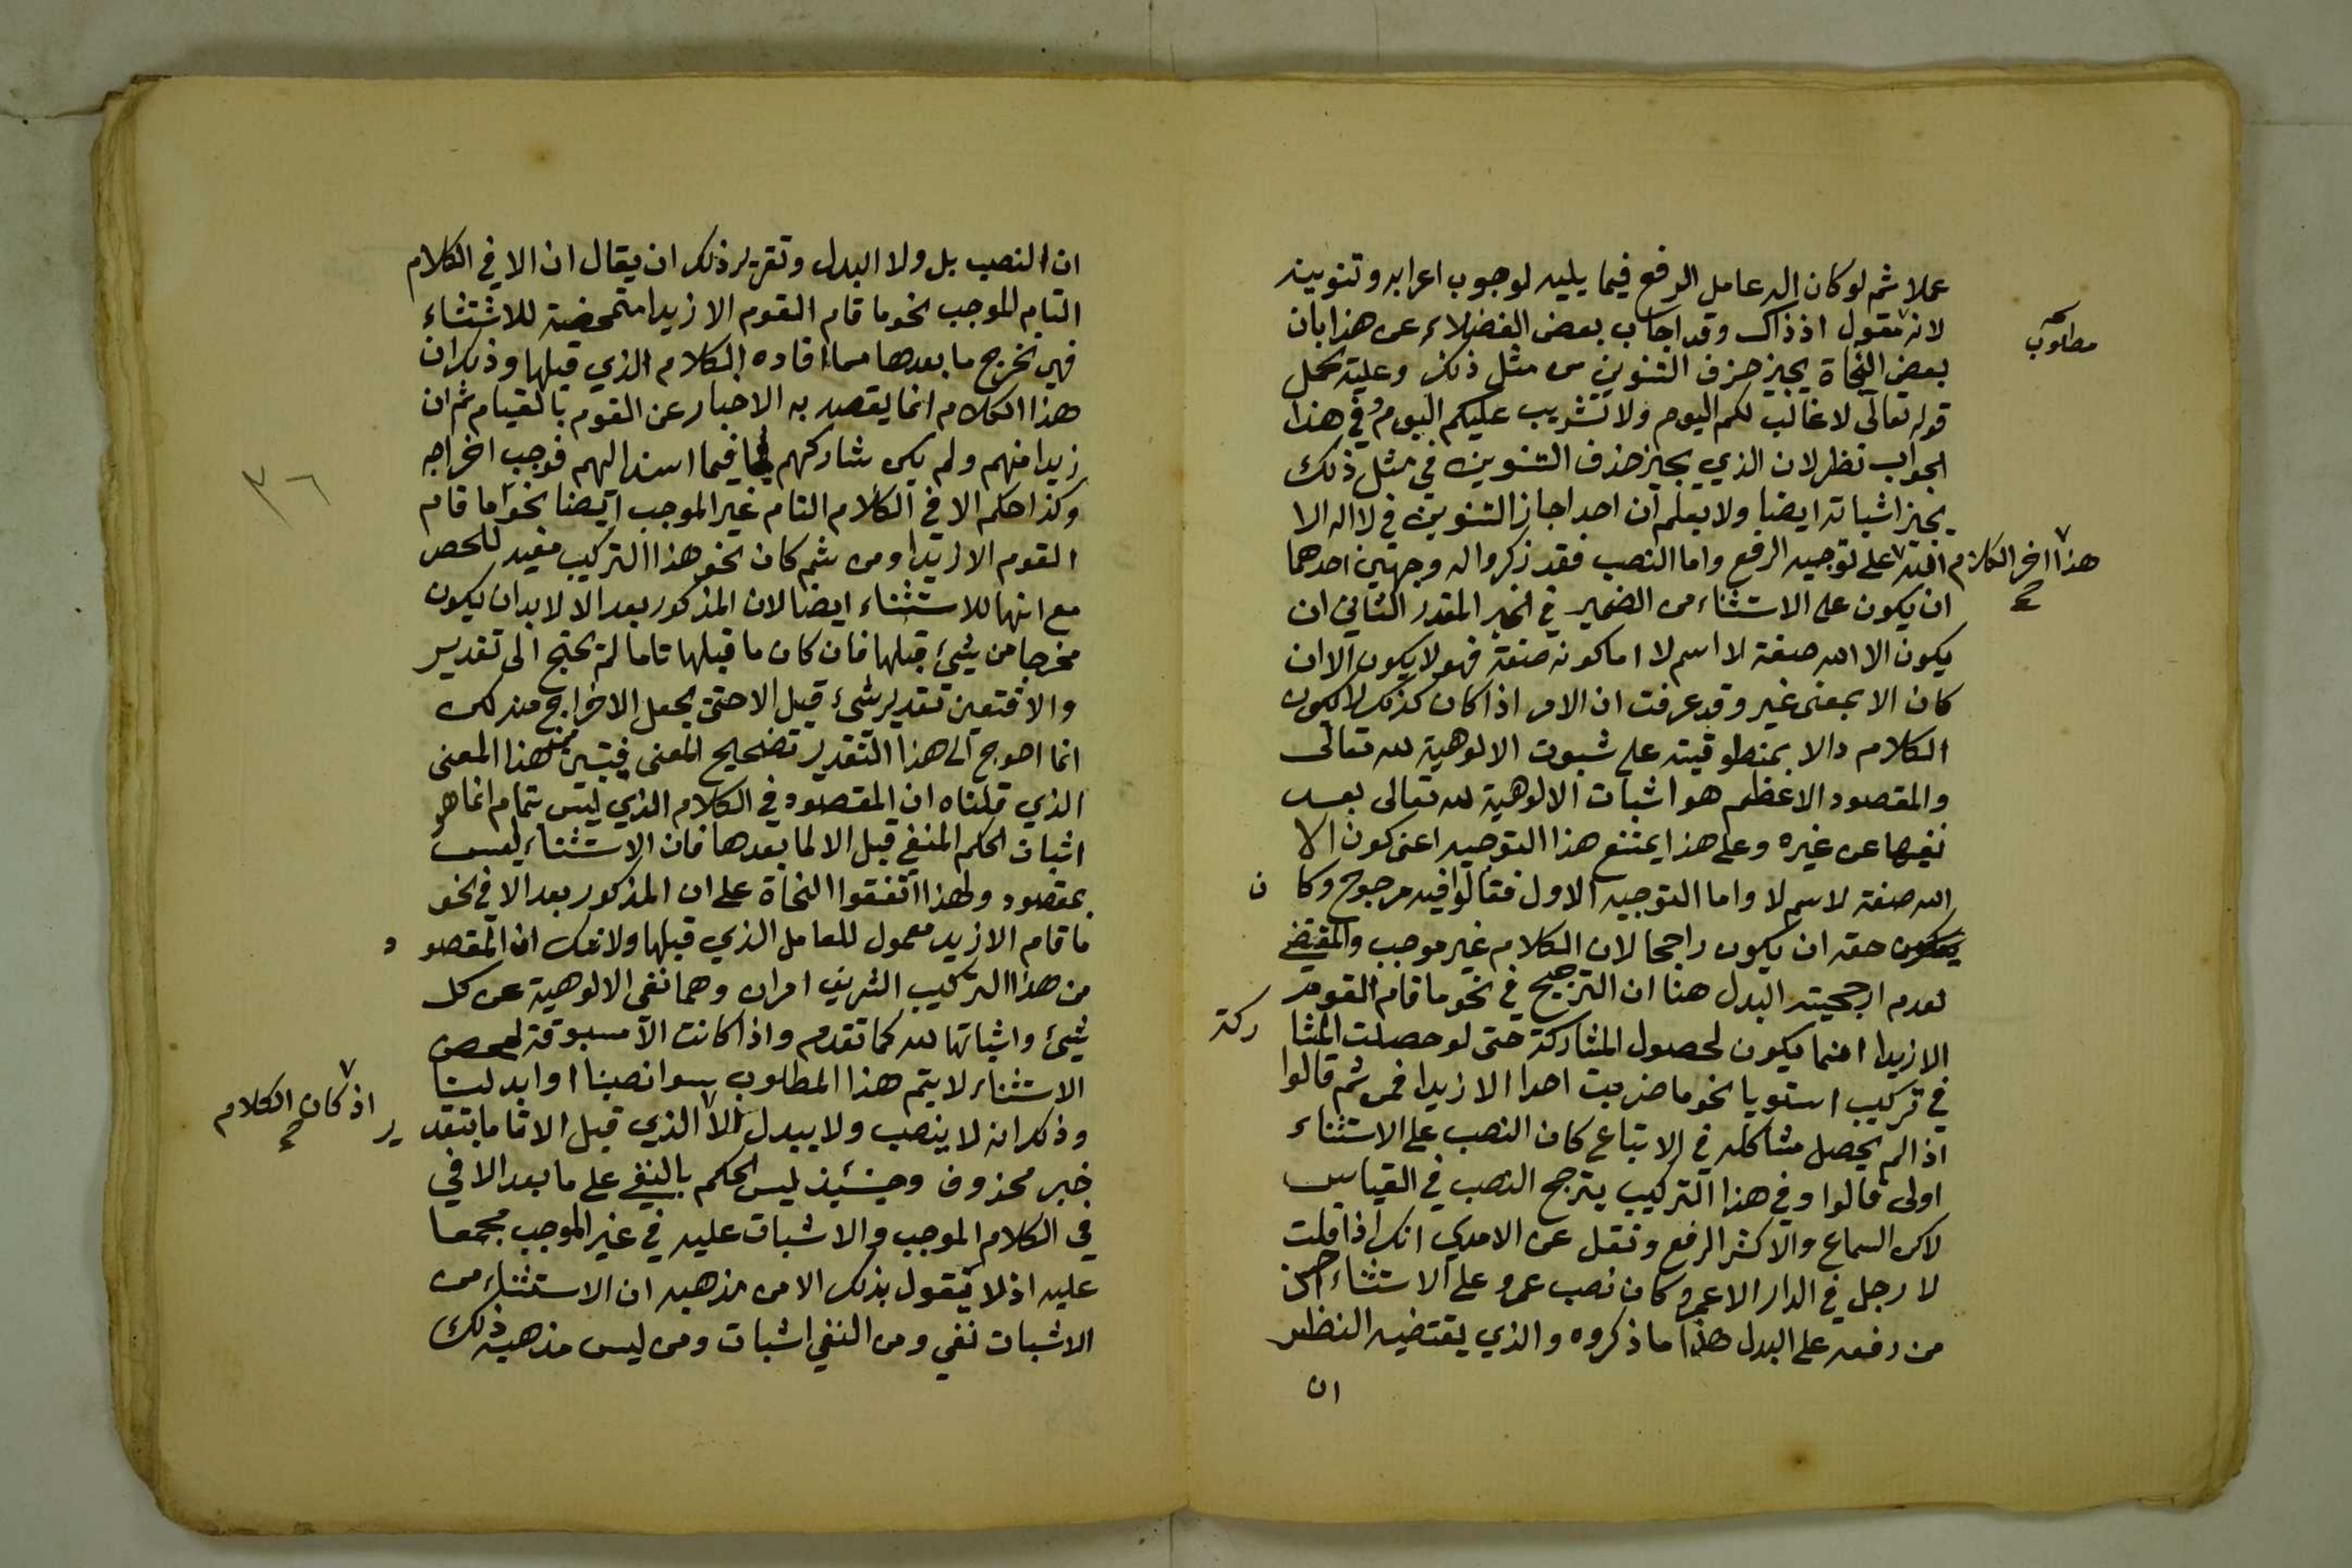 عملا ثم لو كان اله عامل الرفع فيما يليه لوجوب اعرابه وتنوينه
لانه مقول اذ ذاك وقد اجاب بعض الفضلاء عن هذا بان
مطلوب
بعض النحاة يجيز حذف التنوين من مثل ذلك وعليه يحمل
قوله تعالى لا غالب لكم اليوم ولا تثريب عليكم اليوم وفي هذا
الجواب نظر لان الذي يجيز حذف التنوين في مثل ذلك
يجيز اثباته ايضا ولا يعلم ان احد اجاز التنوين في لا اله الا
الله على توجيه الرفع واما النصب فقد ذكروا له وجهين احدهما
هذا اخر الكلام
ان يكون على الاستثناء من الضمير في الخبر المقدر الثاني ان
يكون الا الله صفة لا اسم لا اما كونه صفة فهو لا يكون الا ان
كان الا بمعنى غير وقد عرفت ان الامر اذا كان كذلك لا يكون
الكلام دالا بمنطوقيته على ثبوت الالوهية لله تعالى
والمقصود الاعظم هو اثبات الالوهية لله تعالى بعد
نفيها عن غيره وعلى هذا يمتنع هذا التوجيه اعنى كون الا
الله صفة لاسم لا واما التوجيه الاول فقالوا فيه مرجوح وكا ن
حقه ان يكون راجحا لان الكلام غير موجب والمقتضي
لعدم ارجحيته البدل هنا ان الترجيح في نحو ما قام القوم
الا زيدا انما يكون لحصول المشاركة حتى لو حصلت المشا ركة
في تركيب استويا نحو ما ضربت احدا الا زيدا فمن ثم قالوا
اذا لم يحصل مشاكله في الاتباع كان النصب على الاستثناء
اولى قالوا وفي هذا التركيب يترجح النصب في القياس
لاكن السماع والاكثر الرفع ونقل عن الامدي انك اذا قلت
لا رجل في الدار الا عمرو كان نصب عمرو على الاستثناء احسن
من رفعه على البدل هذا ما ذكروه والذي يقتضيه النظر
ان
ان النصب بل ولا البدل وتقرير ذلك ان يقال ان الا في الكلام
التام الموجب نحو ما قام القوم الا زيدا متمحضة للاستثناء
فهي تخرج ما بعدها مما افاده الكلام الذي قبلها وذلك ان
هذا الكلام انما يقصد به الاخبار عن القوم بالقيام ثم ان
زيدا منهم ولم يكن شاركهم فيما اسند اليهم فوجب اخراجه
٣٦
وكذا حكم الا في الكلام التام غير الموجب ايضا نحو ما قام
القوم الا زيدا ومن ثم كان نحو هذا التركيب مفيد للحصر
مع انها للاستثناء ايضا لان المذكور بعد الا لا بد ان يكون
مخرجا من شيئ قبلها فان كان ما قبلها تاما لم يحتج الى تقدير
والا فتعين تقدير شيئ قبل الا حتى يحصل الاخراج منه لكن
انما احوج الى هذا التقدير تصحيح المعنى فتبين هذا المعنى
الذي قلناه ان المقصود في الكلام الذي ليس بتمام انما هو
اثبات الحكم المنفي قبل الا لما بعدها فان الاستثناء ليس
بمقصود ولهذا اتفقوا النحاة على ان المذكور بعد الا في نحو
ما قام الا زيد معمول للعامل الذي قبلها ولا شك ان المقصو د
من هذا التركيب الشريف امران وهما نفى الالوهية عن كل
شيئ واثباتها لله كما تقدم واذا كانت الا مسبوقة لمحض
الاستثناء لا يتم هذا المطلوب سوا نصبنا او ابدلنا
وذلك انه لا ينصب ولا يبدل الا الذي قبل الا تاما بتقد ير
اذ كان الكلام
خبر محذوف وحينئذ ليس الحكم بالنفي على ما بعد الا في
في الكلام الموجب والاثبات عليه في غير الموجب مجمعا
عليه اذ لا يقول بذلك الا من مذهبه ان الاستثناء من
الاثبات نفي ومن النفي اثبات ومن ليس مذهبه ذلك